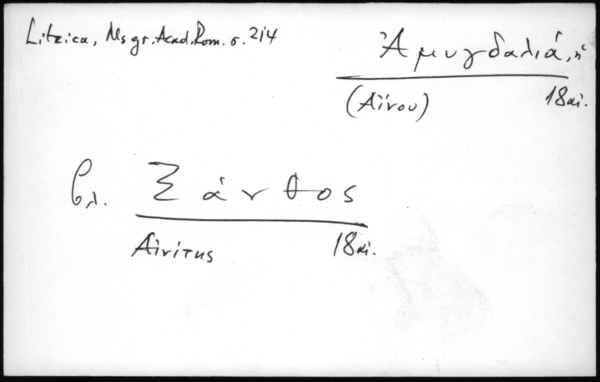 Litzica, Ms gr. Acad. Rom. σ. 214
Ἀμυγδαλιά, ἡ
(Αἴνου) 18 αἰ.
βλ. Ξάνθος
Αἰνίτης 18 αἰ.